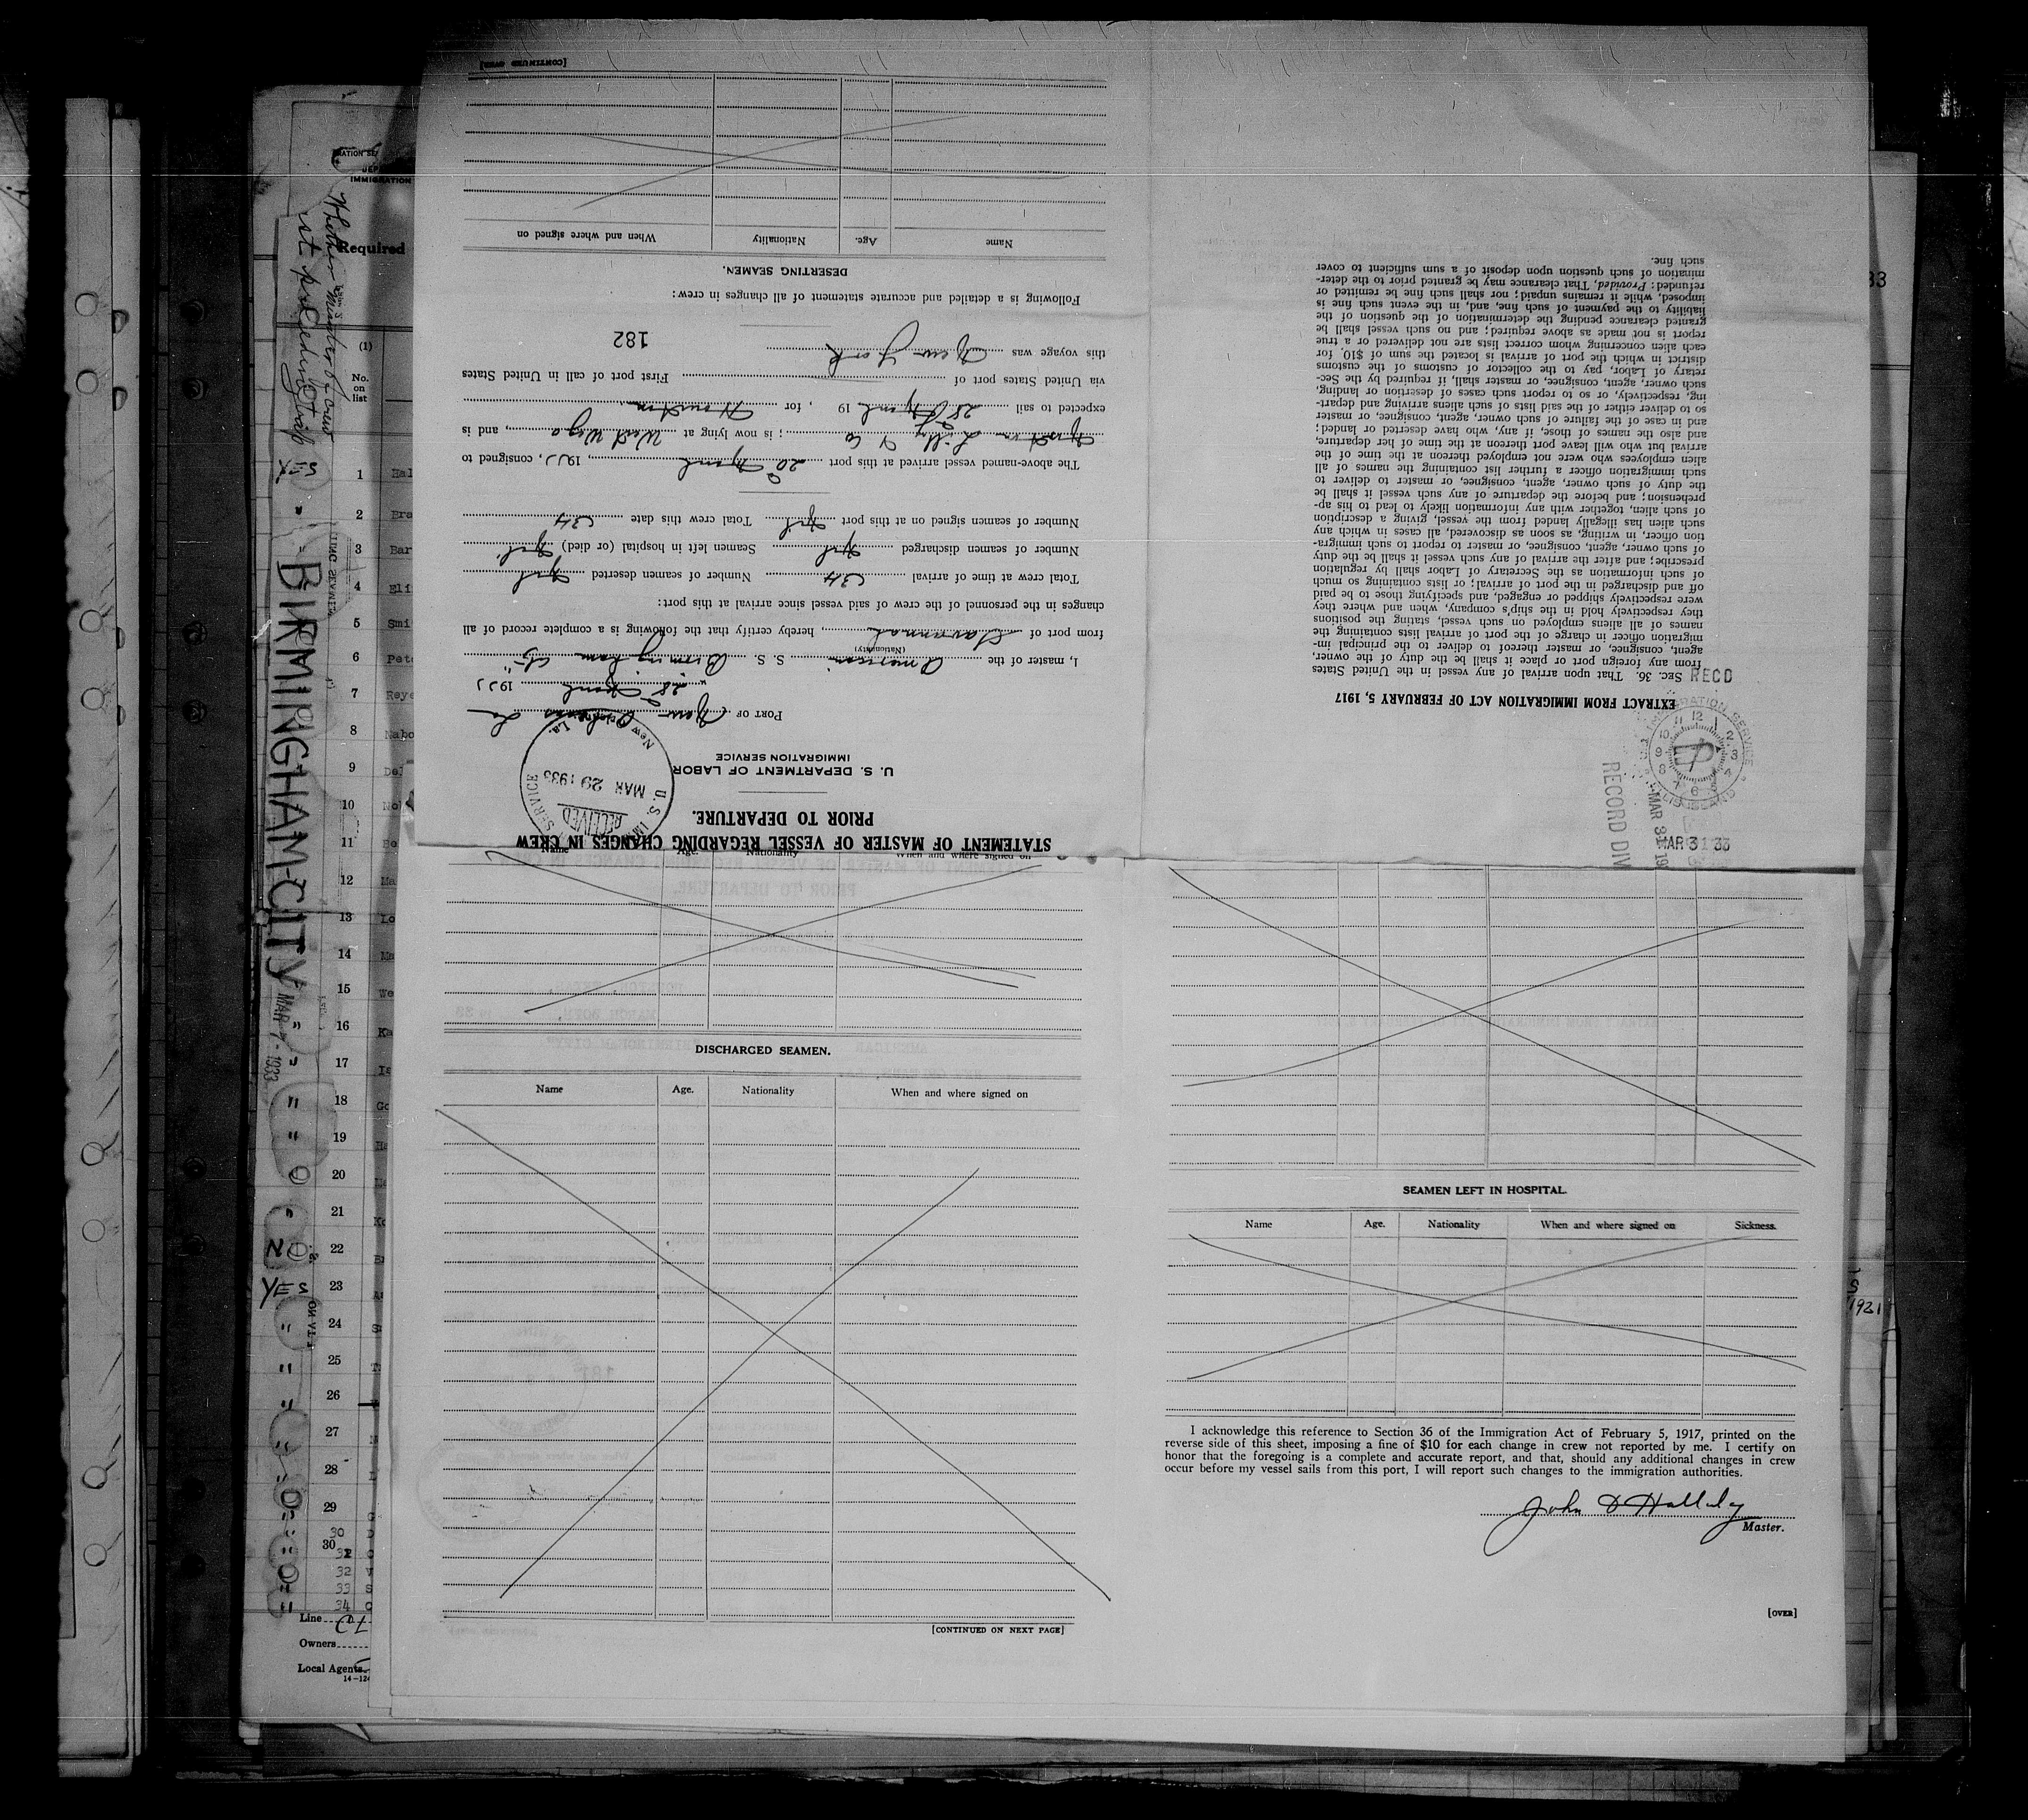 STATEMENT OF MASTER OF VESSEL REGARDING CHANGES IN CREW
PRIOR TO DEPARTURE.
U. S. DEPARTMENT OF LABOR
IMMIGRATION SERVICE
U. S. IMM SERVICE
RECEIVED
MAR 29 1933
New Orleans, La.
PORT OF New Orleans La
28 March 1933
I, master of the American S. S. Birmingham City
(Nationality)
from port of Savannah, hereby certify that the following is a complete record of all
changes in the personnel of the crew of said vessel since arrival at this port:
Total crew at time of arrival 34 Number of seamen deserted Nil
Number of seamen discharged Nil Seamen left in hospital (or died) Nil
Number of seamen signed on at this port Nil Total crew this date 34
The above-named vessel arrived at this port 20 March, 1933, consigned to
Lilly & Co; is now lying at , and is
expected to sail 28 March 19 , for Houston
via United States port of First port of call in United States
this voyage was New York
182
Following is a detailed and accurate statement of all changes in crew:
DESERTING SEAMEN.
Name Age. Nationality When and where signed on
[CONTINUED OVER]
RECD
EXTRACT FROM IMMIGRATION ACT OF FEBRUARY 5, 1917
SEC. 36. That upon arrival of any vessel in the United States
from any foreign port or place it shall be the duty of the owner,
agent, consignee, or master thereof to deliver to the principal im-
migration officer in charge of the port of arrival lists containing the
names of all aliens employed on such vessel, stating the positions
they respectively hold in the ship's company, when and where they
were respectively shipped or engaged, and specifying those to be paid
off and discharged in the port of arrival; or lists containing so much
of such information as the Secretary of Labor shall by regulation
prescribe; and after the arrival of any such vessel it shall be the duty
of such owner, agent, consignee, or master to report to such immigra-
tion officer, in writing, as soon as discovered, all cases in which any
such alien has illegally landed from the vessel, giving a description
of such alien, together with any information likely to lead to his ap-
prehension; and before the departure of any such vessel it shall be
the duty of such owner, agent, consignee, or master to deliver to
such immigration officer a further list containing the names of all
alien employees who were not employed thereon at the time of the
arrival but who will leave port thereon at the time of her departure,
and also the names of those, if any, who have deserted or landed;
and in case of the failure of such owner, agent, consignee, or master
so to deliver either of the said lists of such aliens arriving and depart-
ing, respectively, or so to report such cases of desertion or landing,
such owner, agent, consignee, or master shall, if required by the Sec-
retary of Labor, pay to the collector of customs of the customs
district in which the port of arrival is located the sum of $10 for
each alien concerning whom correct lists are not delivered or a true
report is not made as above required; and no such vessel shall be
granted clearance pending the determination of the question of the
liability to the payment of such fine, and, in the event such fine is
imposed, while it remains unpaid; nor shall such fine be remitted or
refunded: Provided, That clearance may be granted prior to the deter-
mination of such question upon deposit of a sum sufficient to cover
such fine.
IMMIGRATION SERVICE
ELLIS ISLAND
RECORD DIV
MAR 31 33
Name Age. Nationality When and where signed on
DISCHARGED SEAMEN.
Name Age. Nationality When and where signed on
[CONTINUED ON NEXT PAGE]
SEAMEN LEFT IN HOSPITAL.
Name Age. Nationality When and where signed on Sickness.
I acknowledge this reference to Section 36 of the Immigration Act of February 5, 1917, printed on the
reverse side of this sheet, imposing a fine of $10 for each change in crew not reported by me. I certify on
honor that the foregoing is a complete and accurate report, and that, should any additional changes in crew
occur before my vessel sails from this port, I will report such changes to the immigration authorities.
John D Halluly
Master.
[OVER]
IMMIGRATION
Required
Whether member of crew
last preceding trip
(1)
No.
on
list
YES
1
2
3
4
5
6
7
8
9
10
11
12
13
14
15
16
17
18
19
20
21
22
23
24
25
26
27
28
29
30
30
32
33
34
BIRMINGHAM-CITY
MAR 7 - 1933
NO
YES
Line
Owners
Local Agents
33
1921